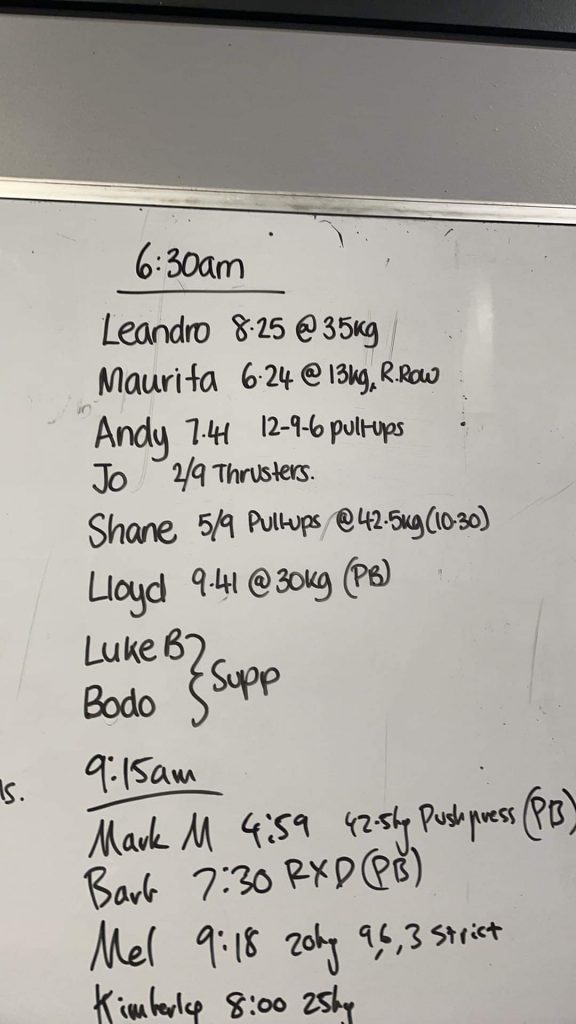 6:30am
Leandro 8.25 @ 35kg
Maurita 6.24 @ 13kg, R.Row
Andy 7.41 12-9-6 pull-ups
Jo 2/9 Thrusters.
Shane 5/9 Pull-ups @ 42.5kg (10.30)
Lloyd 9.41 @ 30kg (PB)
Luke B
Bodo } Supp
9:15am
ls.
Mark M 4:59 42.5kg Push press (PB)
Barb 7:30 RXD (PB)
Mel 9:18 20kg 9,6,3 Strict
Kimberley 8:00 25kg